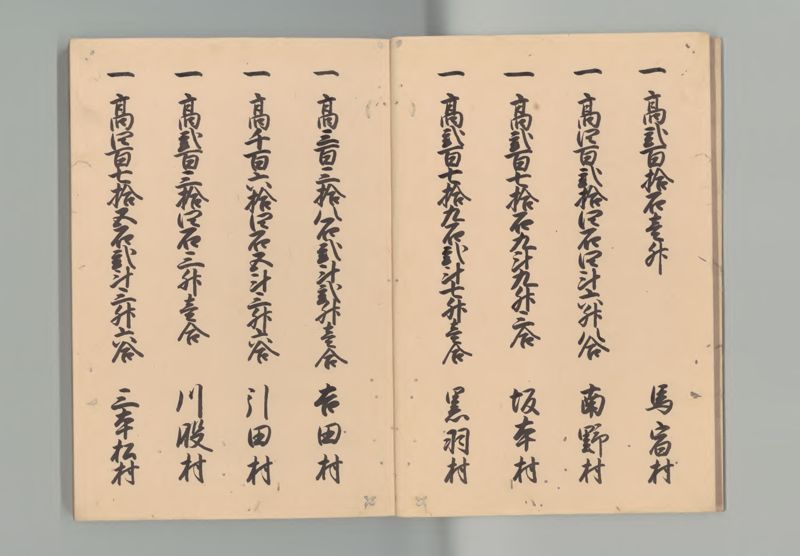 一 高弐百拾石壱升 馬宿村
一 高四百弐拾四石四斗六升八合 南野村
一 高弐百七拾石九斗九升二合 坂本村
一 高弐百七拾九石弐斗七升壱合 黒羽村
一 高三百三拾八石弐斗弐升壱合 吉田村
一 高千百六拾四石五斗三升六合 引田村
一 高弐百三拾四石二升壱合 川股村
一 高四百七拾五石弐斗三升六合 三本松村